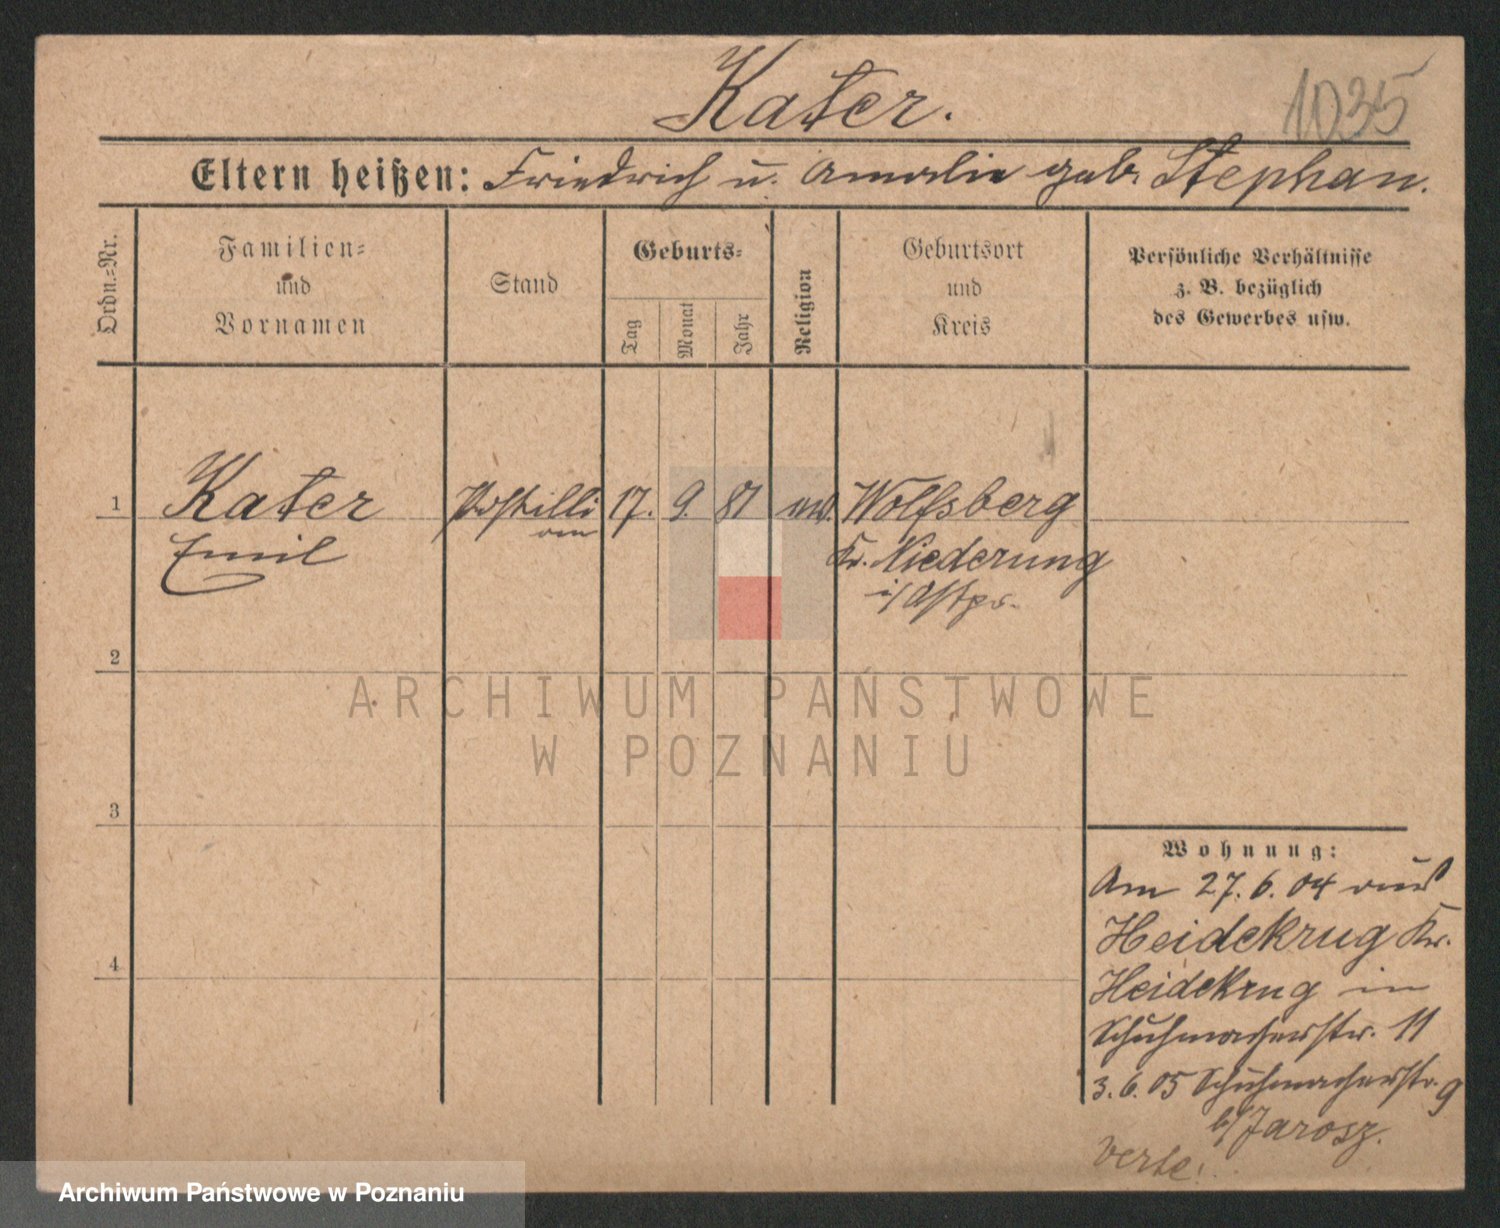 Kater.
1035
Eltern heißen: Friedrich u. Amalie geb. Stephan.
Ordn.-Nr.
Familien-
und
Vornamen
Stand
Geburts-
Tag
Monat
Jahr
Religion
Geburtsort
und
Kreis
Persönliche Verhältnisse
z. B. bezüglich
des Gewerbes usw.
1
Kater
Emil
Postilli
on
17.
9.
81
Wolfsberg
Kr. Niederung
i/Ostpr.
2
ARCHIWUM PAŃSTWOWE
W POZNANIU
3
4
Wohnung:
Am 27.6.04 aus
Heidekrug Kr.
Heidekrug in
Schuhmacherstr. 11
3.6.05 Schuhmacherstr. 9
b/Jarosz.
Verte!
Archiwum Państwowe w Poznaniu